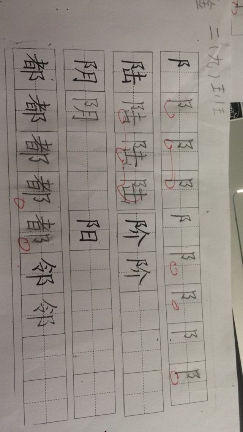 二(九)
阝阝阝阝阝阝阝阝阝
陆陆陆陆阶阶
阴阴阳
都都都都都邻邻